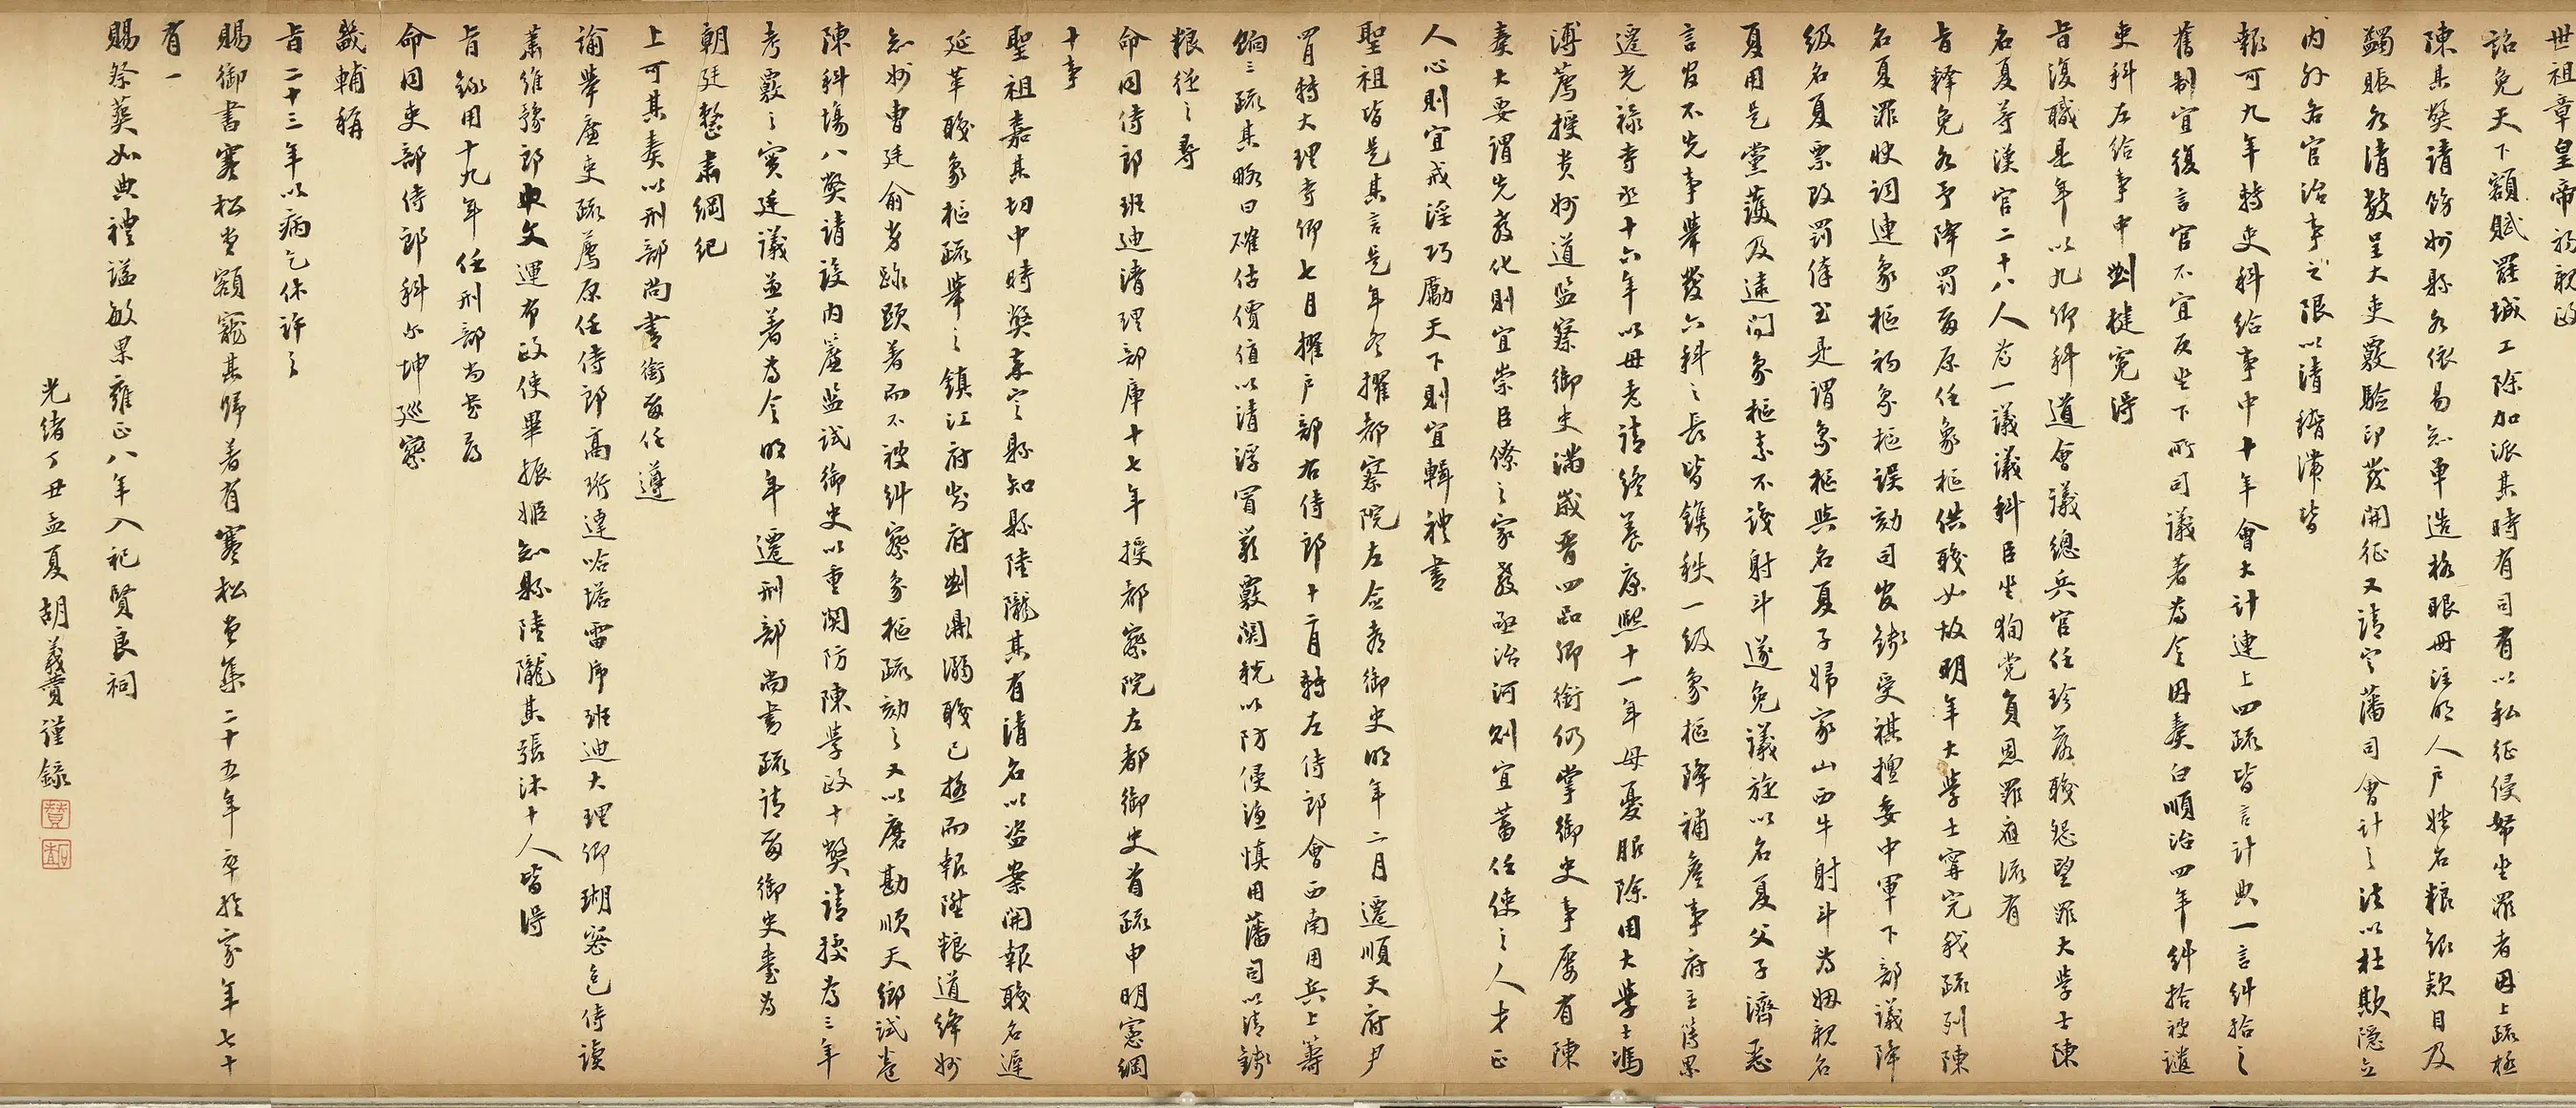 世祖章皇帝初親政
詔免天下額賦羅城工除加派其時有司有以私征侵帑坐罪者因上疏極
陳其獎請飭州縣各依易知單造格眼冊注明人戶姓名糧銀款目及
蠲賑各清數呈大吏覈驗印發開征又請定藩司會計之法以杜欺隱立
內外各官治事之限以清稽滯皆
報可九年轉吏科給事中十年會大計連上四疏皆言計典一言糾拾之
舊制宜復言官不宜反坐下所司議著為令因奏白順治四年糾拾被譴
吏科左給事中劉楗寃得
旨復職是年以九卿科道會議總兵官任珍落職怨望罪大學士陳
名夏等漢官二十八人為一議議科臣坐徇党負恩罪應流有
旨釋免各予降罰留原任象樞供職如故明年大學士甯完我疏列陳
名夏罪狀詞連象樞初象樞誤劾司官錢受祺擅委中軍下部議降
級名夏票改罰俸至是謂象樞與名夏子婦家山西牛射斗為姻親名
夏用是黨護及逮問象樞素不識射斗遂免議旋以名夏父子濟惡
言官不先事舉發六科之長皆鐫秩一級象樞降補詹事府主簿累
遷光祿寺丞十六年以母老請終養康熙十一年母憂服除用大學士馮
溥薦授貴州道監察御史滿歲晋四品卿銜仍掌御史事屢有陳
奏大要謂先教化則宜崇臣僚之家教亟治河則宜蓄任使之人才正
人心則宜戒淫巧勵天下則宜輯禮書
聖祖皆是其言是年冬擢都察院左僉都御史明年二月遷順天府尹
四月轉大理寺卿七月擢户部右侍郎十二月轉左侍郎會西南用兵上籌
餉三疏其略曰確估價值以清浮冒嚴覈關稅以防侵漁慎用藩司以清錢
糧從之尋
命同侍郎班迪清理部庫十七年授都察院左都御史首疏申明憲綱
十事
聖祖嘉其切中時獎嘉定縣知縣陸隴其有清名以盜案開報職名遲
延革職象樞疏舉之鎮江府知府劉鼎溺職已極而報陞糧道絳州
知州曹廷俞劣跡顯著而不被糾察象樞疏劾之又以磨勘順天鄉試卷
陳科場八獎請設內簾監試御史以重關防陳學政十獎請揆為三年
考覈之實廷議並著為令明年遷刑部尚書疏請留御史臺為
朝廷整肅綱紀
上可其奏以刑部尚書銜留任遵
諭舉廉吏疏薦原任侍郎高珩達哈塔雷虎班迪大理卿瑚密色侍讀
蕭維豫郎中文運布政使畢振姬知縣陸隴其張沐十人皆得
旨錄用十九年任刑部尚書尋
命同吏部侍郎科爾坤巡察
畿輔稱
旨二十三年以病乞休許之
賜御書寒松堂額寵其歸著有寒松堂集二十五年卒於家年七十
有一
賜祭葬如典禮諡敏果雍正八年入祀賢良祠
光緒丁丑孟夏胡義贊謹錄